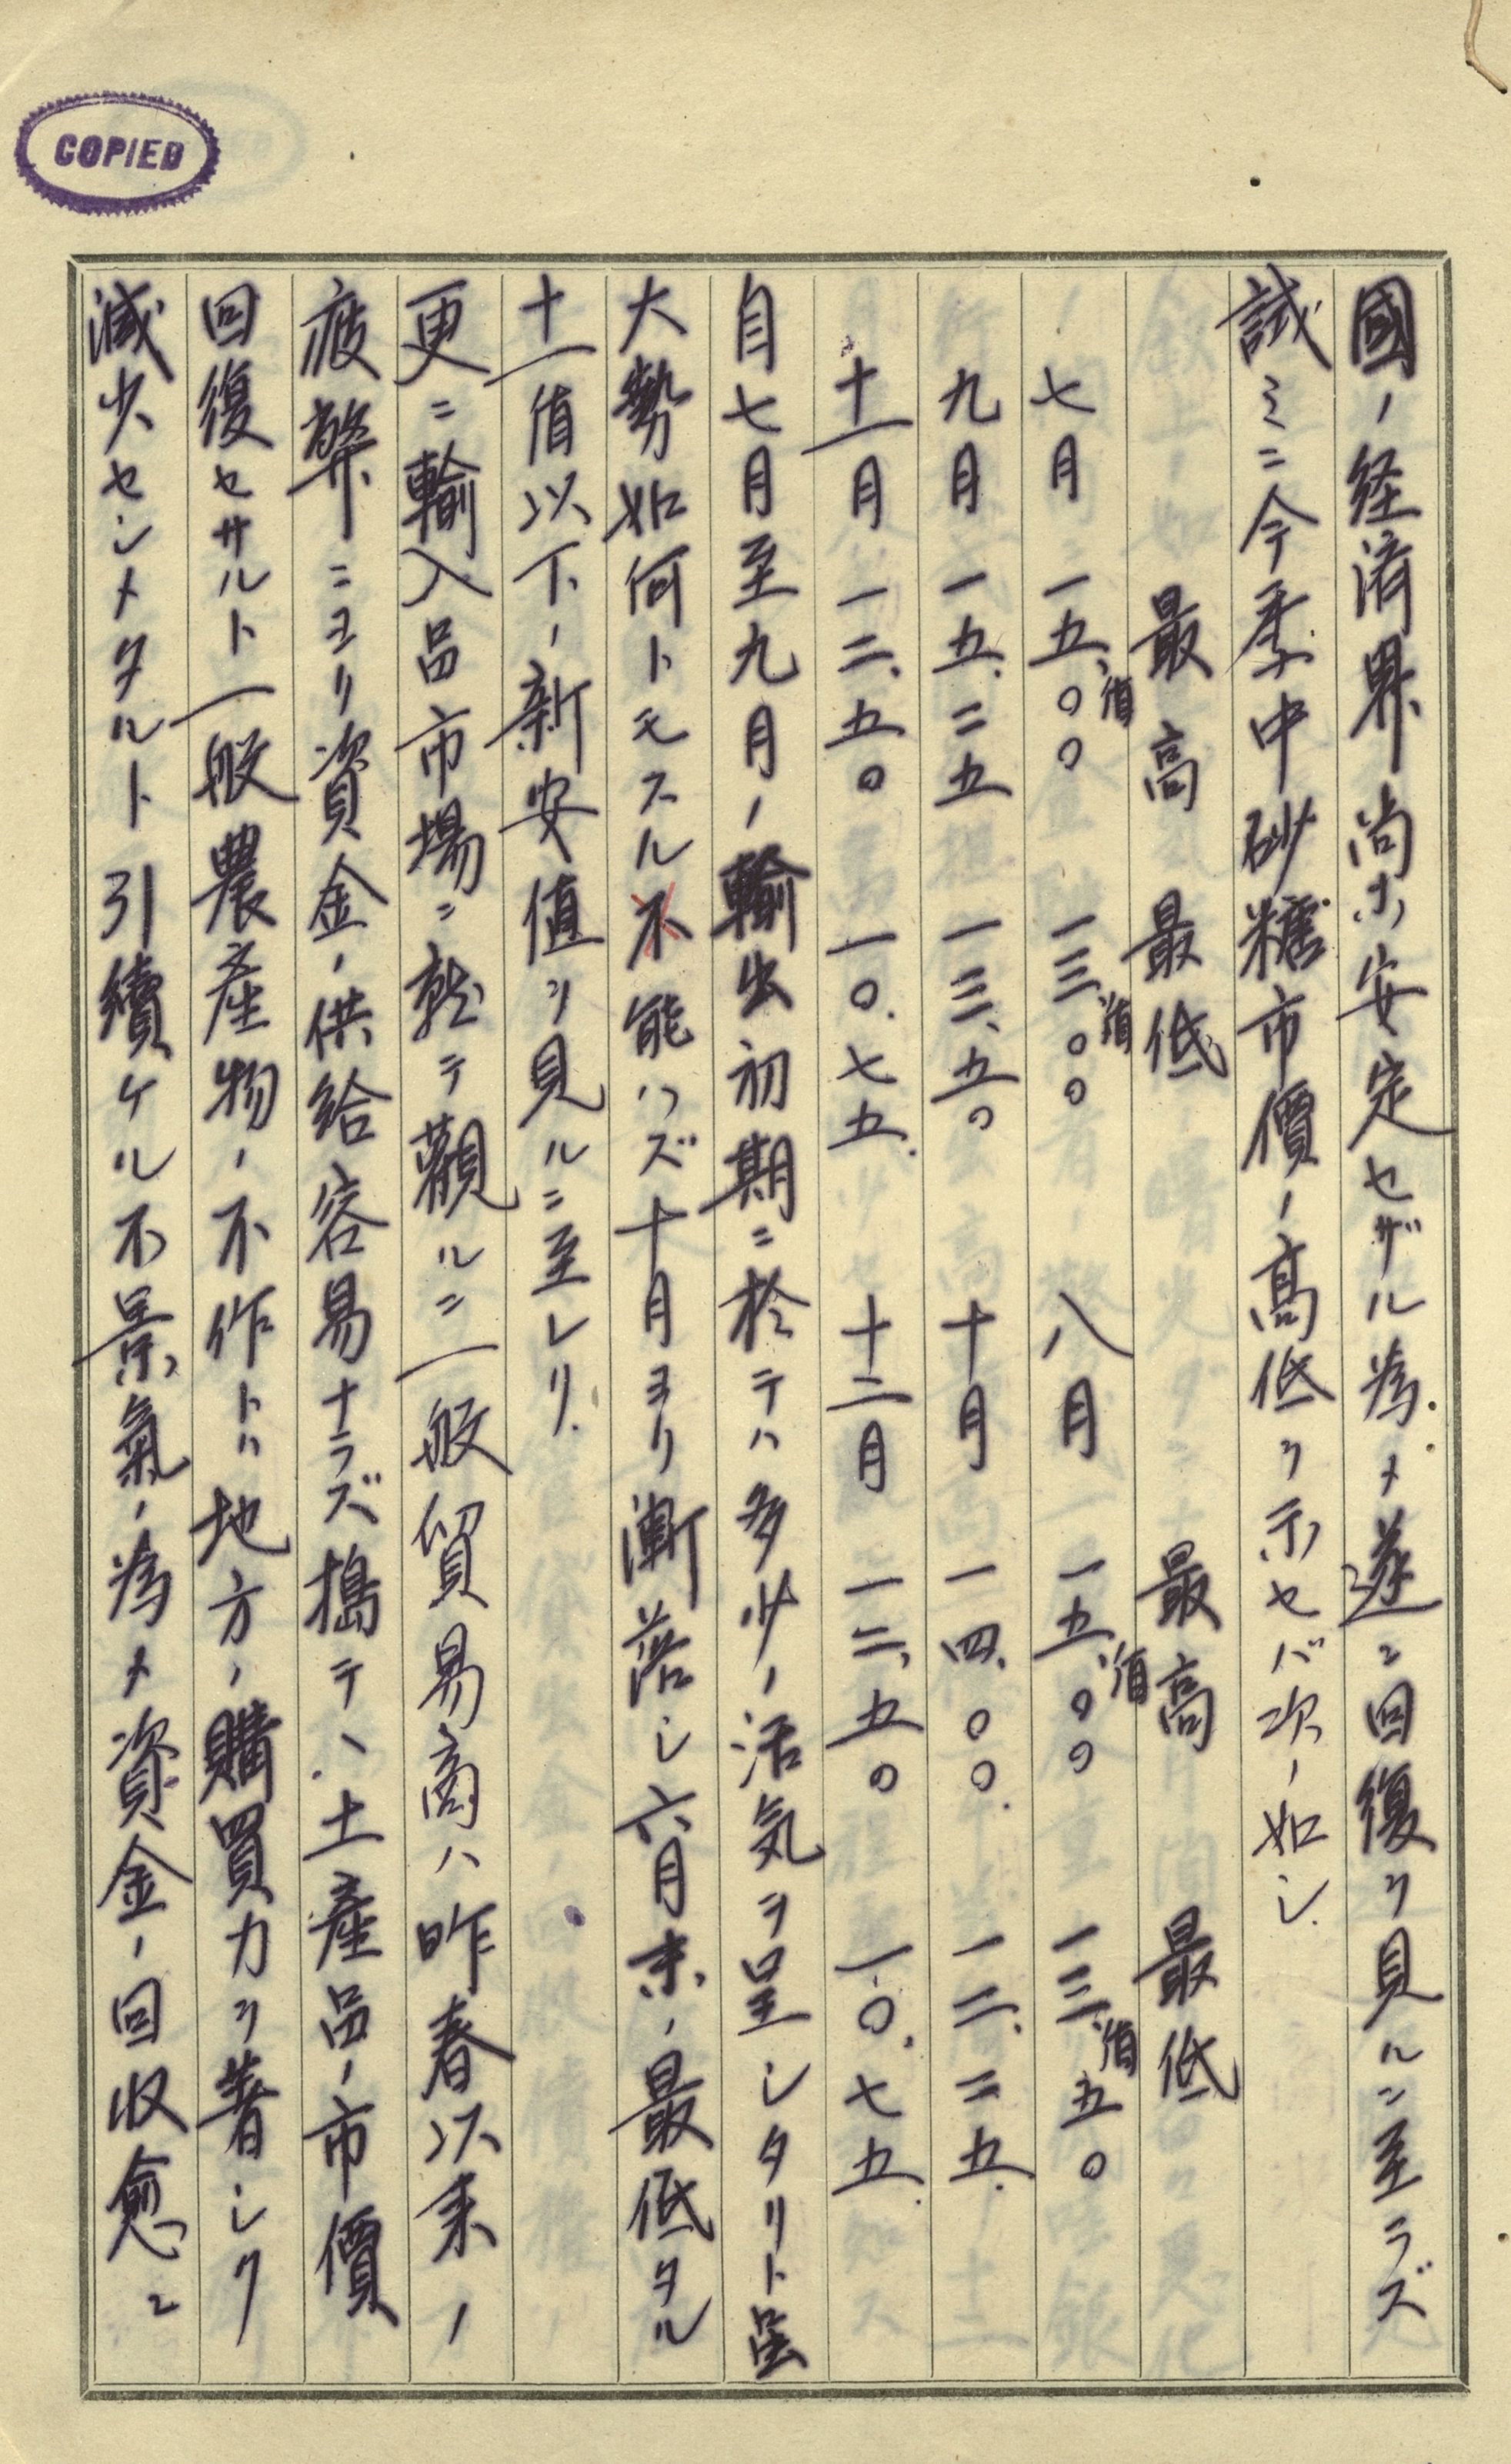 COPIED
國ノ経済界尚ホ安定セザル為メ遂ニ回復ヲ見ルニ至ラズ
試ミニ今季中砂糖市價ノ高低ヲ示セバ次ノ如シ.
最高 最低 最高 最低
七月 一五、〇〇 一三、〇〇 八月 一五、〇〇 一三、五〇
九月 一五.二五 一三、五〇 十月 一四、〇〇. 一二、二五.
十一月 一二、五〇 一〇.七五. 十二月 一二、五〇 一〇.七五.
自七月至九月ノ輸出初期ニ於テハ多少ノ活気ヲ呈シタリト虽
大勢如何トモスル不能ハズ十月ヨリ漸落シ六月末ノ最低タル
十一値以下ノ新安値ヲ見ルニ至レリ.
更ニ輸入品市場ニ就テ觀ルニ一般貿易商ハ昨春以来ノ
疲弊ニヨリ資金ノ供給容易ナラズ搗テヽ土産品ノ市價
回復セサルト一般農産物ノ不作トハ地方ノ購買力ヲ著シク
減少センメタルト引續ケル不景氣ノ為メ資金ノ回収愈ニ